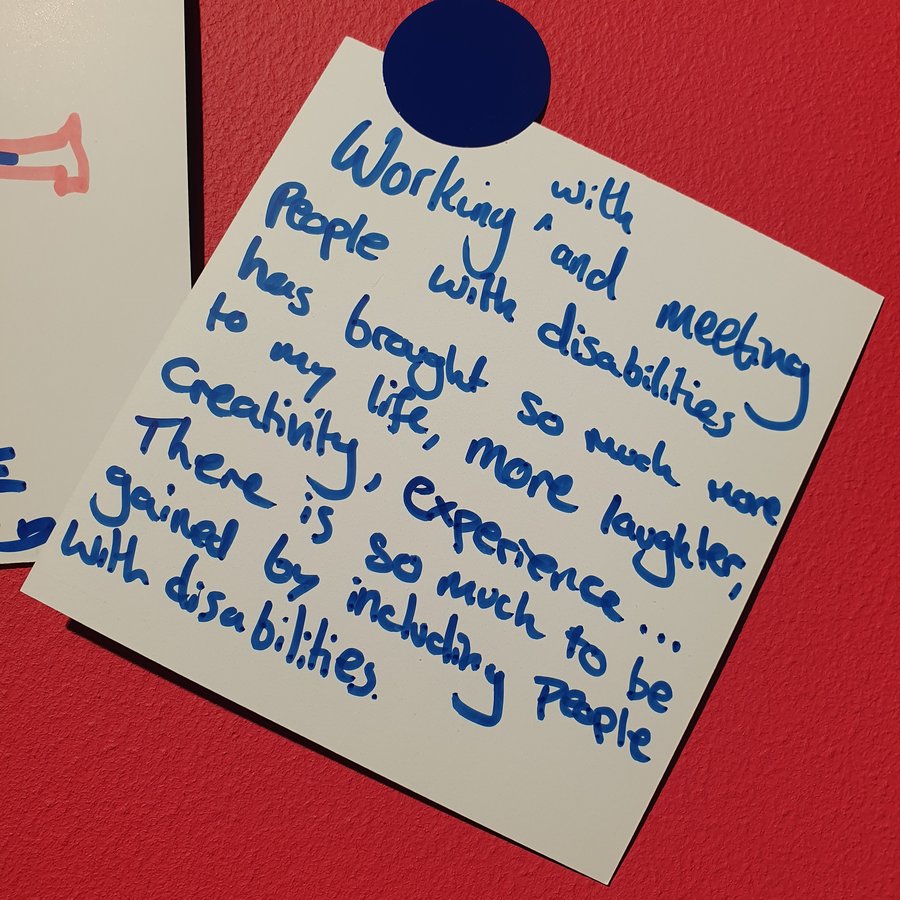 Working with and meeting
People with disabilities
has brought so much more
to my life, more laughter,
Creativity, experience...
There is so much to be
gained by including people
with disabilities.